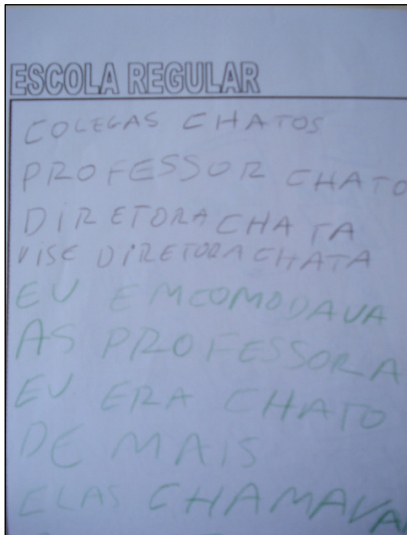 ESCOLA REGULAR
COLEGAS CHATOS
PROFESSOR CHATO
DIRETORA CHATA
VISE DIRETORA CHATA
EU EMCOMODAVA
AS PROFESSORA
EU ERA CHATO
DE MAIS
ELAS CHAMAVA